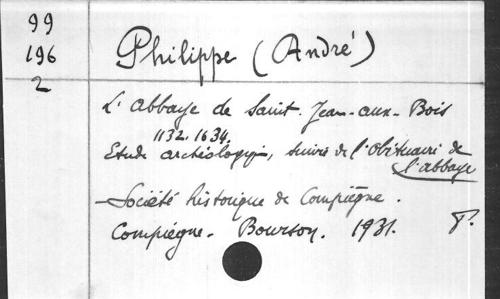 99
196
2
Philippe (André)
L'abbaye de Saint-Jean-aux-Bois
1132.1634.
Etude archéologique, suivie de l'obituaire de
l'abbaye
Société historique de Compiègne.
Compiègne. Bourson. 1931. P.